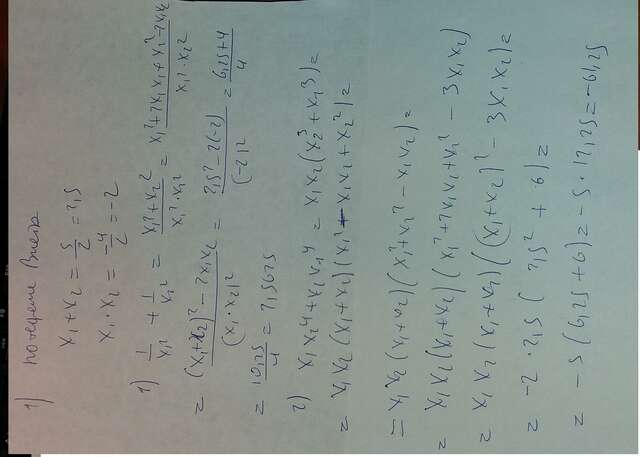 1) по теореме Виета
x₁+x₂ = 5/2 = 2,5
x₁·x₂ = -4/2 = -2
1) 1/x₁² + 1/x₂² = (x₁²+x₂²)/(x₁²·x₂²) = (x₁²+2x₁x₂+x₂²-2x₁x₂)/(x₁²·x₂²)
= ((x₁+x₂)²-2x₁x₂)/(x₁·x₂)² = (2,5²-2(-2))/(-2)² = (6,25+4)/4
= 10,25/4 = 2,5625
2) x₁x₂⁴+x₂x₁⁴ = x₁x₂(x₂³+x₁³) =
= x₁x₂(x₁+x₂)(x₁²-x₁x₂+x₂²) =
= x₁x₂(x₁+x₂)(x₁²+x₂²-x₁x₂) =
= x₁x₂(x₁+x₂)(x₁²+2x₁x₂+x₂²-3x₁x₂)
= x₁x₂(x₁+x₂)((x₁+x₂)²-3x₁x₂) =
= -2·2,5(2,5²+6) =
= -5(6,25+6) = -5·12,25 = -61,25